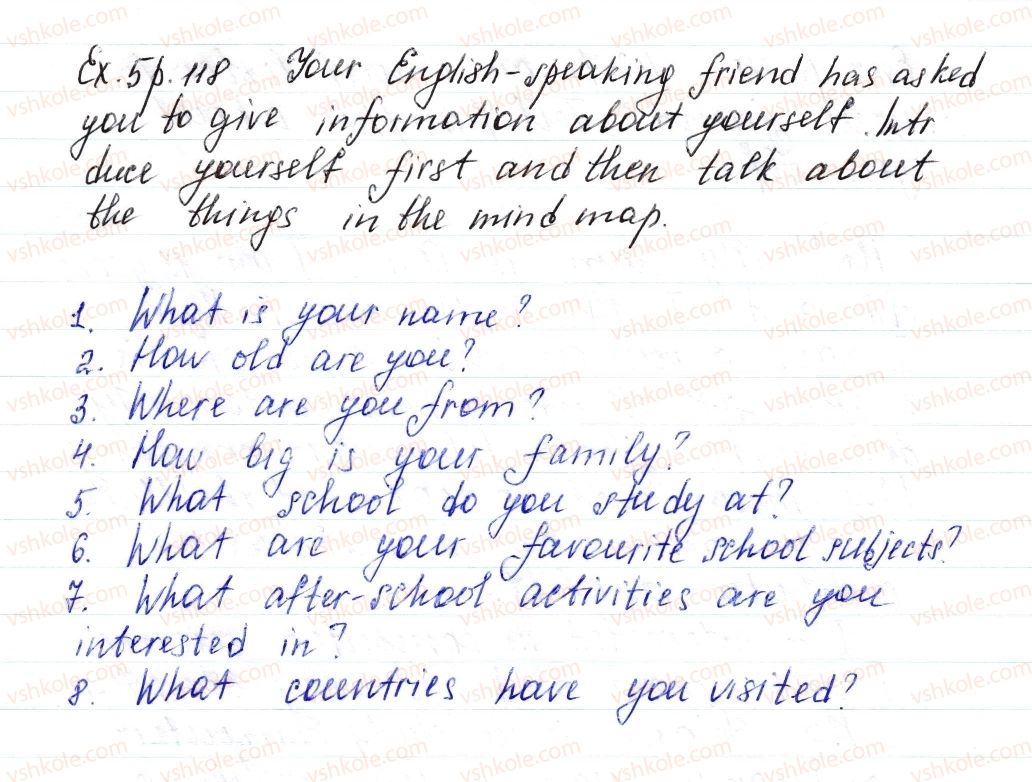 Ex. 5 p. 118 Your English-speaking friend has asked
you to give information about yourself. Intr
duce yourself first and then talk about
the things in the mind map.
1. What is your name?
2. How old are you?
3. Where are you from?
4. How big is your family?
5. What school do you study at?
6. What are your favourite school subjects?
7. What after-school activities are you
interested in?
8. What countries have you visited?